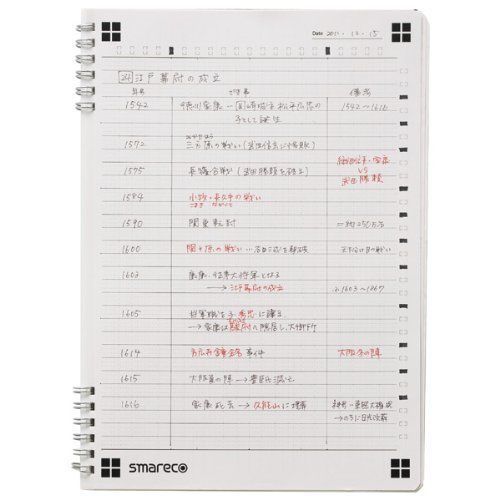 Date 2011・12・15
24 江戸幕府の成立
年号 できごと 備考
1542 徳川家康…岡崎城主松平広忠の 1542〜1616
子として誕生
1572 三方ヶ原の戦い(武田信玄に惨敗)
1575 長篠合戦(武田勝頼を破る) 織田信長・家康
VS
武田勝頼
1584 小牧・長久手の戦い
こまき ながくて
1590 関東転封 =約250万石
1600 関ヶ原の戦い…石田三成を 天下分け目の戦い
1603 家康、征夷大将軍となる
→江戸幕府の成立 1603〜1867
1605 将軍職を子秀忠に譲る
→家康は駿府に隠居し、大御所
1614 方広寺鐘銘事件 大阪冬の陣
1615 大阪夏の陣→豊臣滅亡
1616 家康死去→久能山に埋葬 神号…東照大権現
→のちに日光改葬
smareco